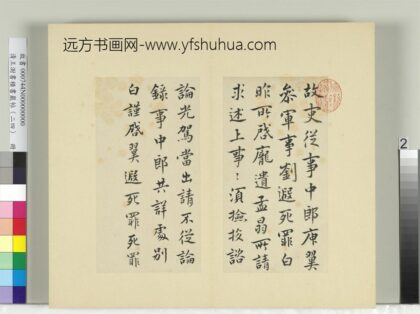 远方书画网-www.yfshuhua.com
故吏從事中郎庾翼
參軍事劉遐死罪白
昨所啟龐遺孟昜所請
求述上事須撿技諮
論光駕當出請不從論
錄事中郎共詳處別
白謹啟翼遐死罪死罪
2